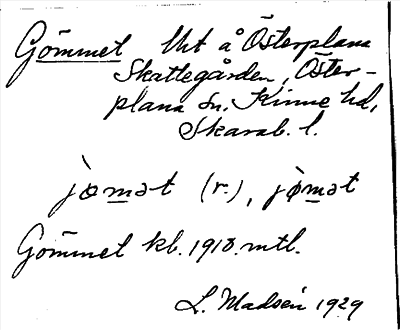 Gömmet Utt å Österplana
Skattegården, Öster-
plana sn. Kinne hd,
Skarab. l.
jømət (r.), jømət
Gömmet kb. 1910. mtl.
L. Madsén 1929